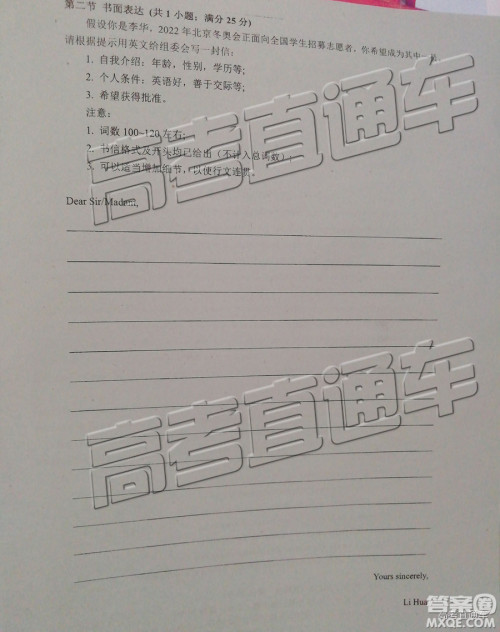 第二节 书面表达 (共1小题；满分25分)
假设你是李华，2022年北京冬奥会正面向全国学生招募志愿者，你希望成为其中一员
请根据提示用英文给组委会写一封信：
1. 自我介绍：年龄，性别，学历等；
2. 个人条件：英语好，善于交际等；
3. 希望获得批准。
注意：
1. 词数100~120左右；
2. 书信格式及开头均已给出（不计入总词数）；
3. 可以适当增加细节，以使行文连贯。
高考直通车
Dear Sir/Madam,
高考直通车
Yours sincerely,
Li Hua
答案圈
MXQE.COM